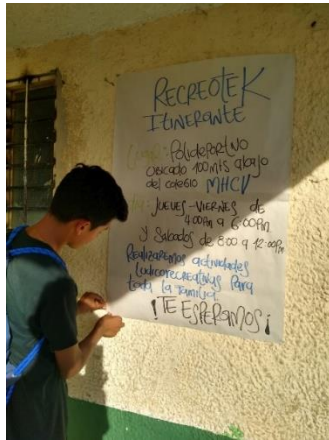 RECREOTEK
ITINERANTE
Lugar: Polideportivo
ubicado 100 mts abajo
del colegio MHCV
Día: JUEVES - VIERNES de
4:00Pm a 6:00Pm
y Sabados de 8:00 a 12:00Pm
Realizaremos actividades
ludicorecreativas Para
toda la familia
¡TE ESPERAMOS¡